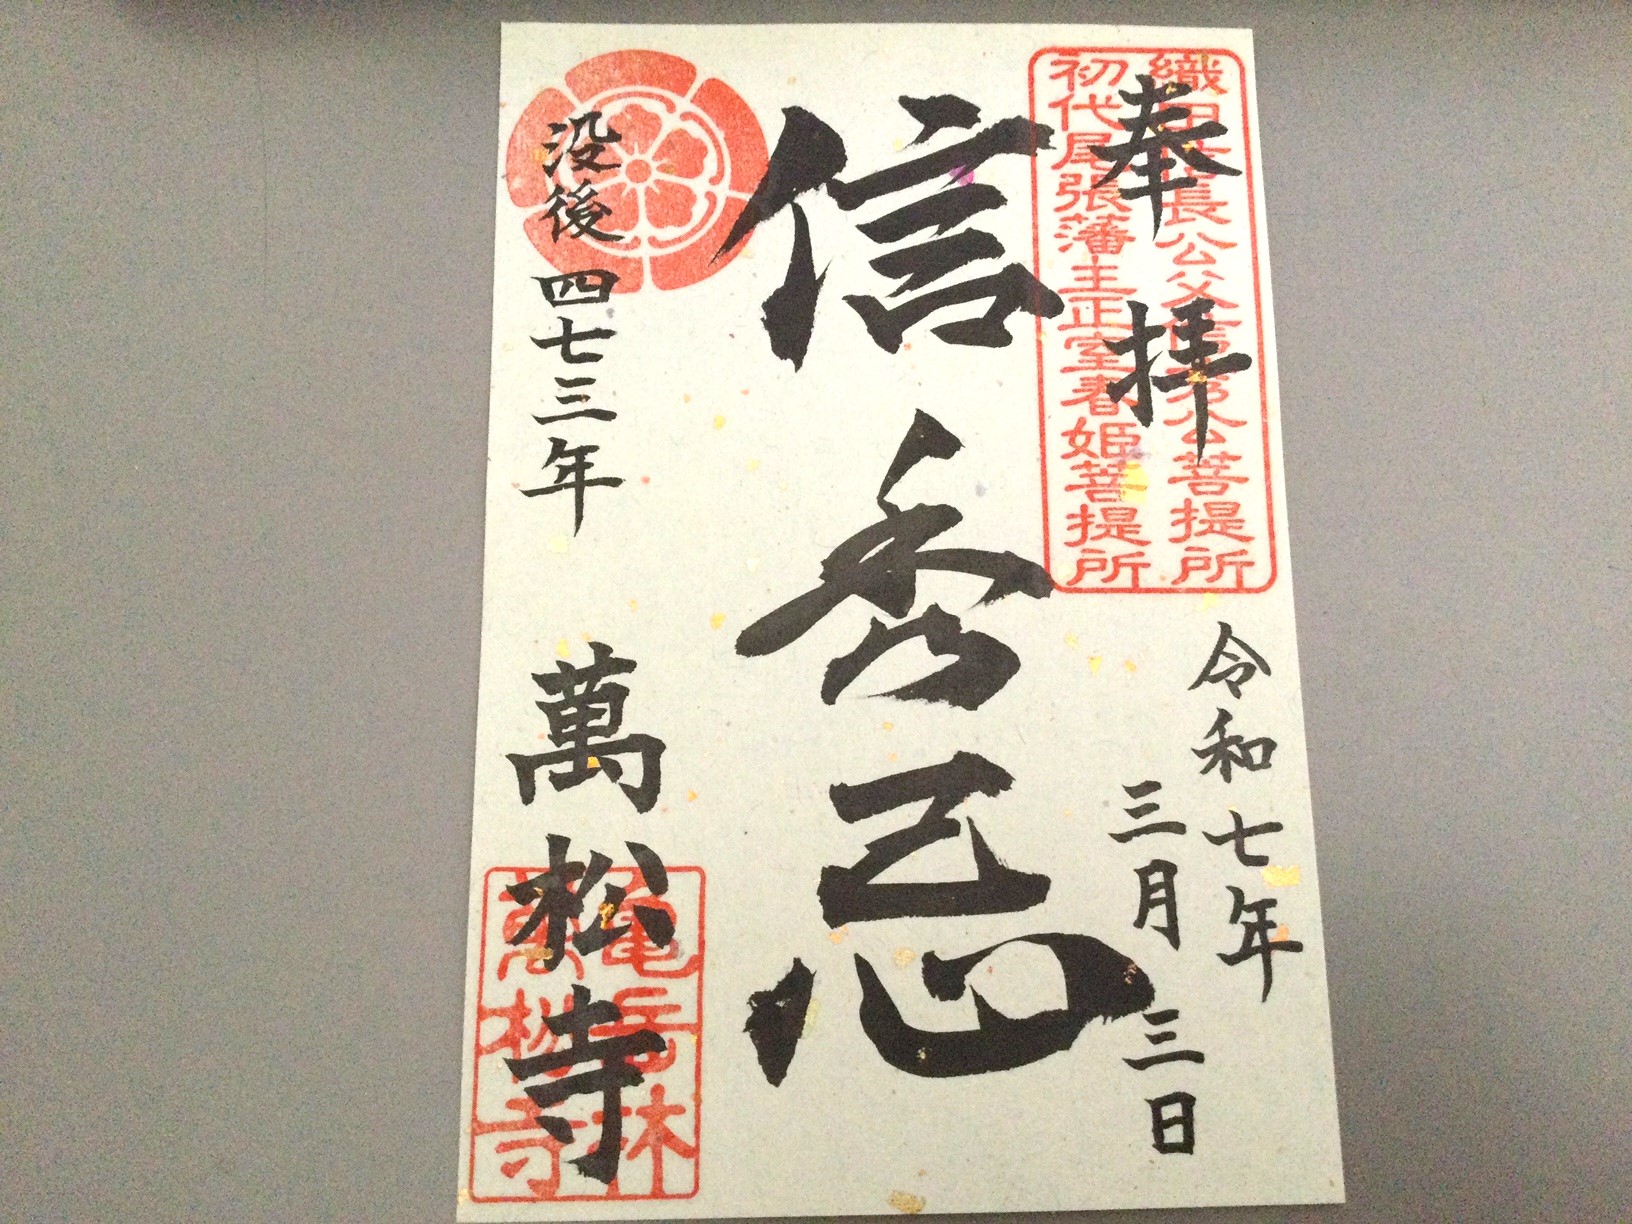 奉拝
織田信長公父信秀公菩提所
初代尾張藩主正室春姫菩提所
令和七年
三月三日
信秀忌
没後四七三年
萬松寺
亀岳林
萬松寺